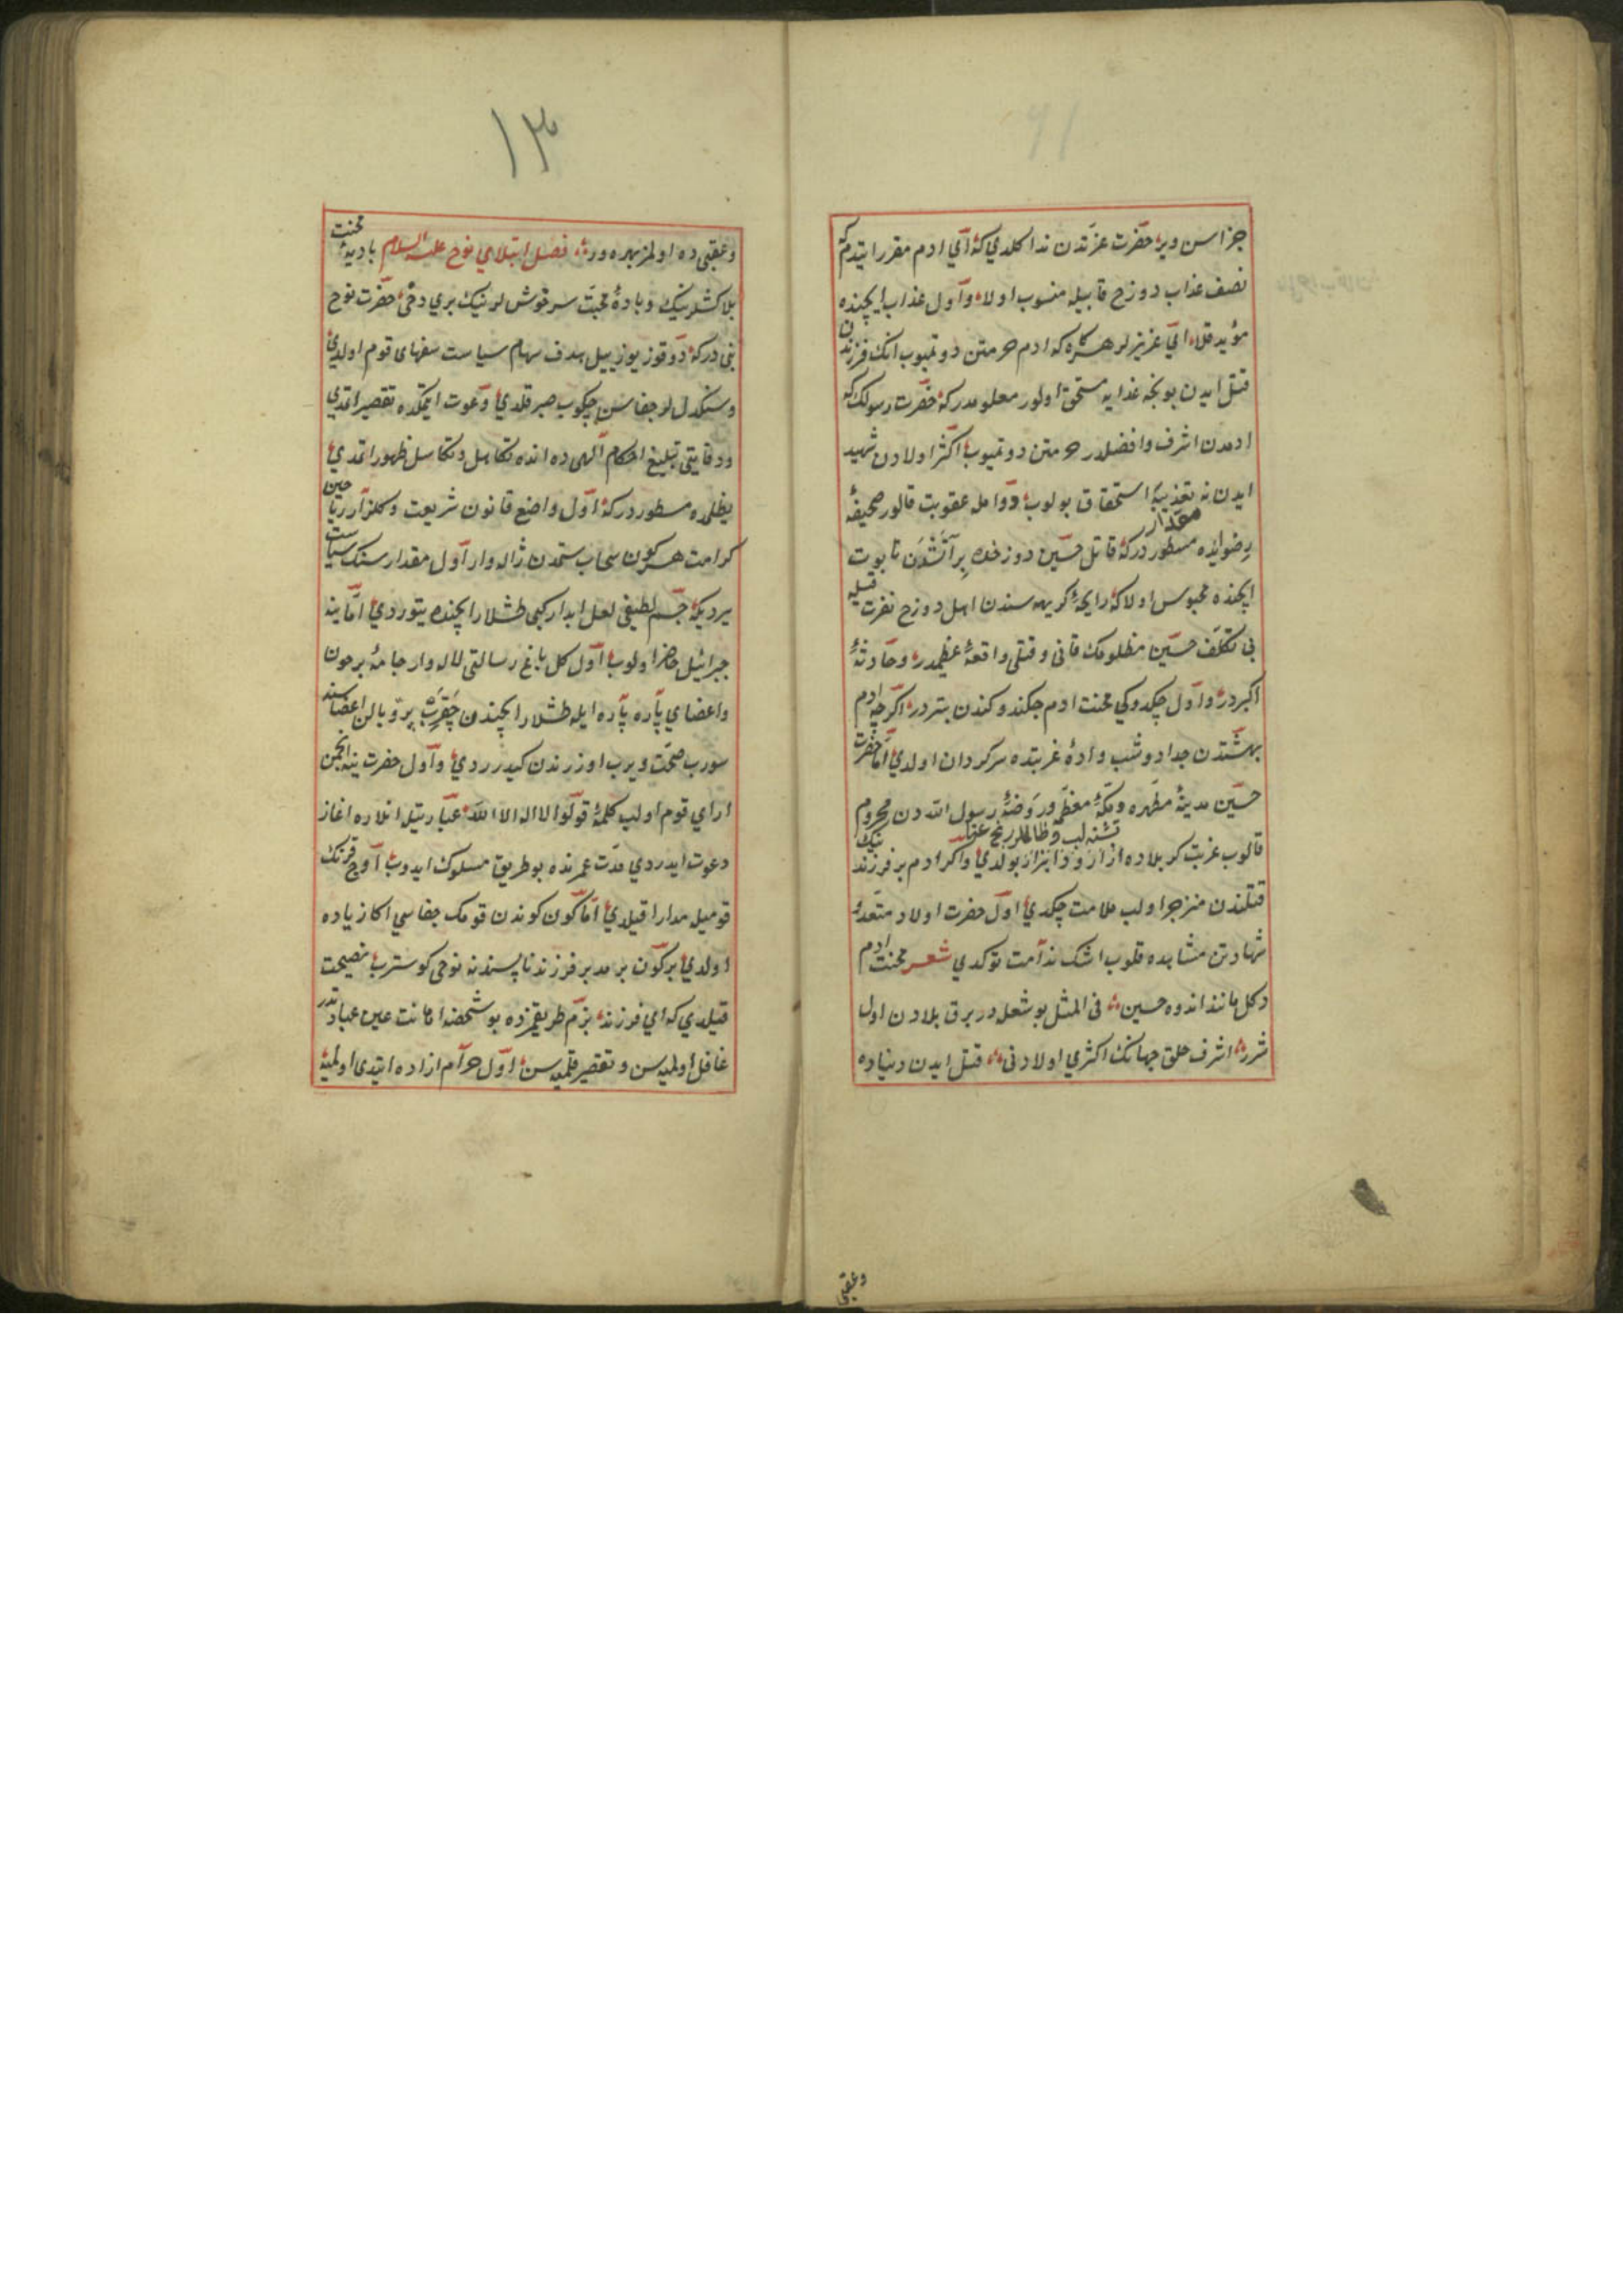 جزاسن ویر حضرت عزتدن ندا کلدی که ای ادم مقرر ایتدم که
نصف عذاب دوزخ قابیله منسوب اولا و اول عذاب ایچنده
مؤید قلا ای عزیزلر هر کاه که ادم حرمتن دوتمیوب انک فرزندن
قتل ایدن بونجه عذابه مستحق اولور معلومدر که حضرت رسولک که
ادمدن اشرف و افضلدر حرمتن دوتمیوب اکثر اولادن شهید
ایدن نه تعذیبه استحقاق بولوب و دوامله عقوبت قالور صحیفهٔ
رضوانده مسطوردر که قاتل حسین دوزخده بر آتشدن تابوت
مقدار
ایچنده محبوس اولا که رایحهٔ کریهه سندن اهل دوزخ نفرت قیله
بی تکلف حسین مظلومک قانی و قتلی واقعهٔ عظیمدر و حادثهٔ
اکبردر و اول چکدوکی محنت ادم چکندوکندن بتردر اکرچه ادم
بهشتدن جدا دوشب وادهٔ غربتده سرکردان اولدی اما حضرت
حسین مدینهٔ مطهره و مکهٔ معظمه و روضهٔ رسول الله دن محروم
قالوب غربت کربلاده ازار و و ابزار بولدی و اکر ادم بر فرزندینک
تشنه لب و ظالملر
قتلندن منزجر اولب ملامت چکدی اول حضرت اولاد متعدد
شهادتن مشاهده قلوب اشک ندامت توکدی شعر محنت ادم
دکل مانند اندوه حسین فی المثل بو شعله در برق بلادن اول
شرر اشرف خلق جهانک اکثری اولادنی قتل ایدن دنیاده
وعقبی
١٣
وعقبی ده اولمز بهره ور فصل ابتلای نوح علیه السلام بادیهٔ محنت
بلاکشلرینک و بادهٔ محبت سرخوش لرینک بری دخی حضرت نوح
نبی در که دوقوز یوز ییل هدف سهام سیاست سفهای قوم اولدی
وسنکدل لر جفاسن چکوب صبر قلدی و دعوت ایتمکده تقصیر اتمدی
ودقایق تبلیغ احکام الهی ده انده تکاهل و تکاسل ظهور اتمدی
یظلمده مسطوردر که اول واضع قانون شریعت و کلزار ریاحین
کرامت هر کون سحاب ستمدن ژاله وار اول مقدار سنک سیاست
یردیکه جسم لطیفی لعل ابدار کبی طشلار ایچنده یتوردی اما ینه
جبرائیل حاضر اولوب اول کل باغ رسالتی لاله وار جامهٔ پرخون
واعضای پاره پاره ایله طشلار ایچندن چقرب پر و بالن اعضاسنه
سورب صحت ویرب اوزرندن کیدرردی و اول حضرت ینه انجمن
ارای قوم اولب کلمهٔ قولوا لا اله الا الله عباریتله انلاره اغاز
دعوت ایدردی مدت عمرنده بو طریق مسلوک ایدوب اوچ قرنک
قومیله مدارا قیلدی اما کون کوندن قومک جفاسی اکا زیاده
اولدی بر کون بر مدبر فرزند ناپسندنه نوحی کوسترب نصیحت
قیلدی که ای فرزند بزم طریقمزده بو شخصه اهانت عین عبادتدر
غافل اولمیه سن و تقصیر قلمیه سن اول حرام ازاده ایتدی اولمیه